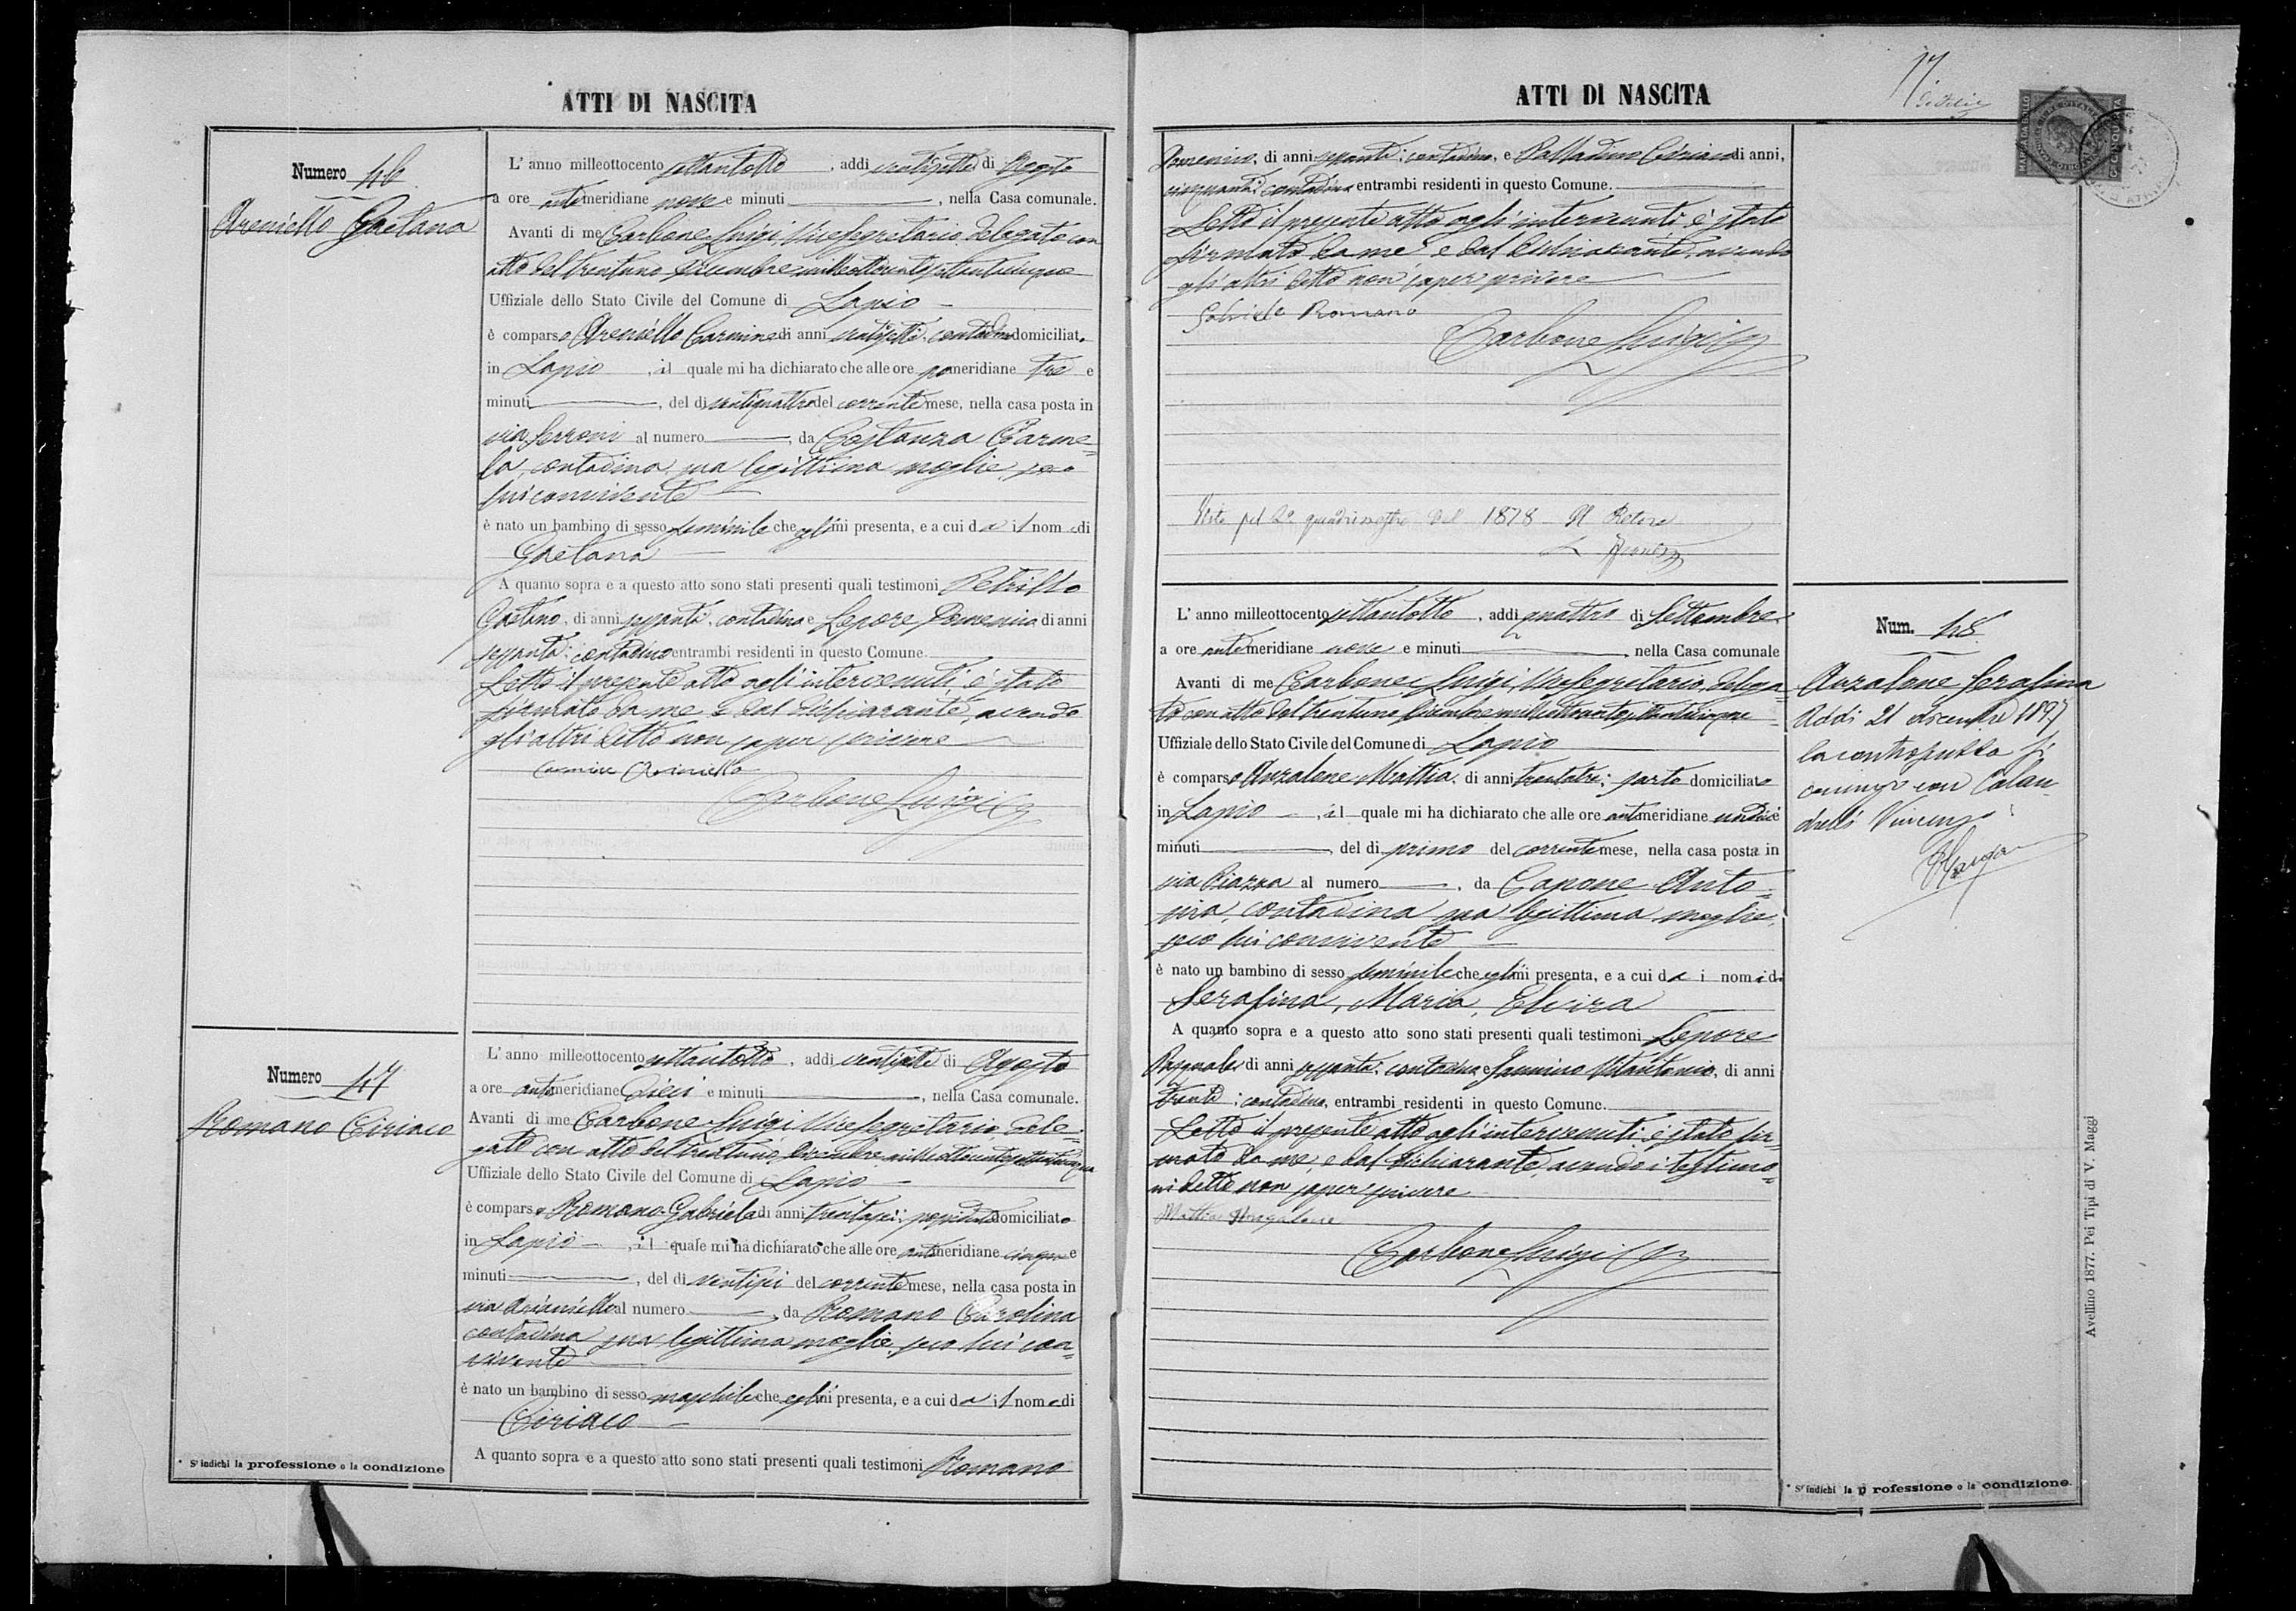 ATTI DI NASCITA
Numero 46
Areniello Gaetana
L' anno milleottocento settantotto, addi ventisette di Agosto
a ore antimeridiane nove e minuti, nella Casa comunale.
Avanti di me Carbone Luigi Vice Segretario delegato con
atto del trentuno Dicembre milleottocentosettantacinque
Uffiziale dello Stato Civile del Comune di Lapio
è comparso Areniello Carmine di anni ventisette, contadino domiciliato
in Lapio, il quale mi ha dichiarato che alle ore pomeridiane tre e
minuti, del dì ventiquattro del corrente mese, nella casa posta in
via Serroni al numero, da Costanza Carme=
la, contadina sua legittima moglie, seco
lui convivente
è nato un bambino di sesso feminile che egli mi presenta, e a cui da il nome di
Gaetana
A quanto sopra e a questo atto sono stati presenti quali testimoni Petrillo
Gaetano, di anni sessanta, contadino e Lepore Domenico di anni
sessanta; contadino entrambi residenti in questo Comune.
Letto il presente atto agli intervenuti, è stato
firmato da me e dal dichiarante, avendo
gli altri detto non saper scrivere
Carmine Areniello
Carbone Luigi
Numero 47
Romano Ciriaco
L' anno milleottocento settantotto, addi ventisette di Agosto
a ore antimeridiane Dieci e minuti, nella Casa comunale.
Avanti di me Carbone Luigi Vice Segretario, dele=
gato con atto del trentuno Dicembre milleottocentosettantacinque
Uffiziale dello Stato Civile del Comune di Lapio
è comparso Romano Gabriele di anni trentasei; possidente domiciliato
in Lapio, il quale mi ha dichiarato che alle ore antimeridiane cinque e
minuti, del dì ventisei del corrente mese, nella casa posta in
via Arianiello al numero, da Romano Carolina
contadina sua legittima moglie, seco lui con=
vivente
è nato un bambino di sesso maschile che egli mi presenta, e a cui da il nome di
Ciriaco
A quanto sopra e a questo atto sono stati presenti quali testimoni Romano
* S' indichi la professione o la condizione
ATTI DI NASCITA
17
MARCA DA BOLLO
Domenico, di anni sessanta; contadino, e Palladino Ciriaco di anni,
cinquanta; contadino entrambi residenti in questo Comune.
Letto il presente atto agli intervenuti, è stato
firmato da me e dal dichiarante, avendo
gli altri detto non saper scrivere
Gabriele Romano
Carbone Luigi
Visto pel 2º quadrimestre del 1878 Il Pretore
Num. 48
Anzalone Serafina
Addì 21 dicembre 1897
la controscritta si
coniugò con Calan-
drelli Vincenzo
L' anno milleottocento settantotto, addi quattro di Settembre
a ore antimeridiane nove e minuti, nella Casa comunale
Avanti di me Carbone Luigi, Vice Segretario, delega
to con atto del trentuno Dicembre milleottocentosettantacinque
Uffiziale dello Stato Civile del Comune di Lapio
è comparso Anzalone Mattia, di anni trentatre; sarto domiciliato
in Lapio, il quale mi ha dichiarato che alle ore antimeridiane undici e
minuti, del dì primo del corrente mese, nella casa posta in
via Piazza al numero, da Capone Anto=
nia, contadina sua legittima moglie,
seco lui convivente
è nato un bambino di sesso feminile che egli mi presenta, e a cui da i nomi di
Serafina, Maria, Elvira
A quanto sopra e a questo atto sono stati presenti quali testimoni Lepore
Pasquale, di anni sessanta; contadino e Iannino Vitantonio, di anni
trenta; contadino, entrambi residenti in questo Comune.
Letto il presente atto agli intervenuti, è stato fir=
mato da me, e dal dichiarante, avendo i testimo=
ni detto non saper scrivere
Mattia Anzalone
Carbone Luigi
* S' indichi la professione o la condizione.
Avellino 1877. Pei Tipi di V. Maggi